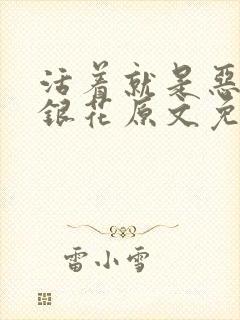 活着就是恶
银花原文免
雷小雪